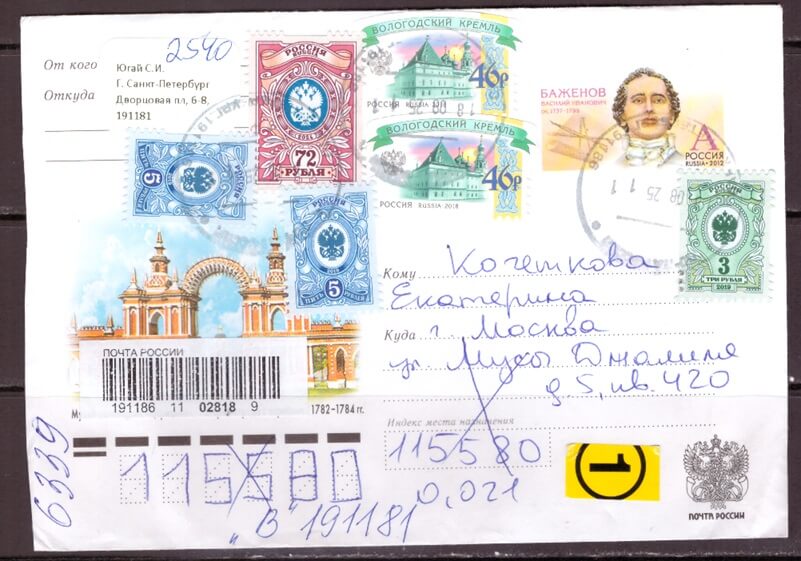 2540
От кого
Югай С.И.
Откуда
Г. Санкт-Петербург
Дворцовая пл, 6-8,
191181
РОССИЯ
72
РУБЛЯ
ВОЛОГОДСКИЙ КРЕМЛЬ
46р
РОССИЯ RUSSIA 2018
ВОЛОГОДСКИЙ КРЕМЛЬ
46р
РОССИЯ RUSSIA 2018
БАЖЕНОВ
ВАСИЛИЙ ИВАНОВИЧ
1737-1799
А
РОССИЯ
RUSSIA•2012
08 25 11
5
РОССИЯ
5
2019
РОССИЯ
3
ТРИ РУБЛЯ
2019
Кому Кочеткова
Екатерина
Куда г. Москва
ул. Мусы Джалиля
д 5, кв. 420
ПОЧТА РОССИИ
191186 11 02818 9
1782-1784 гг.
Индекс места назначения
115580
115580
0,021
"В" 191181
6339
1
ПОЧТА РОССИИ